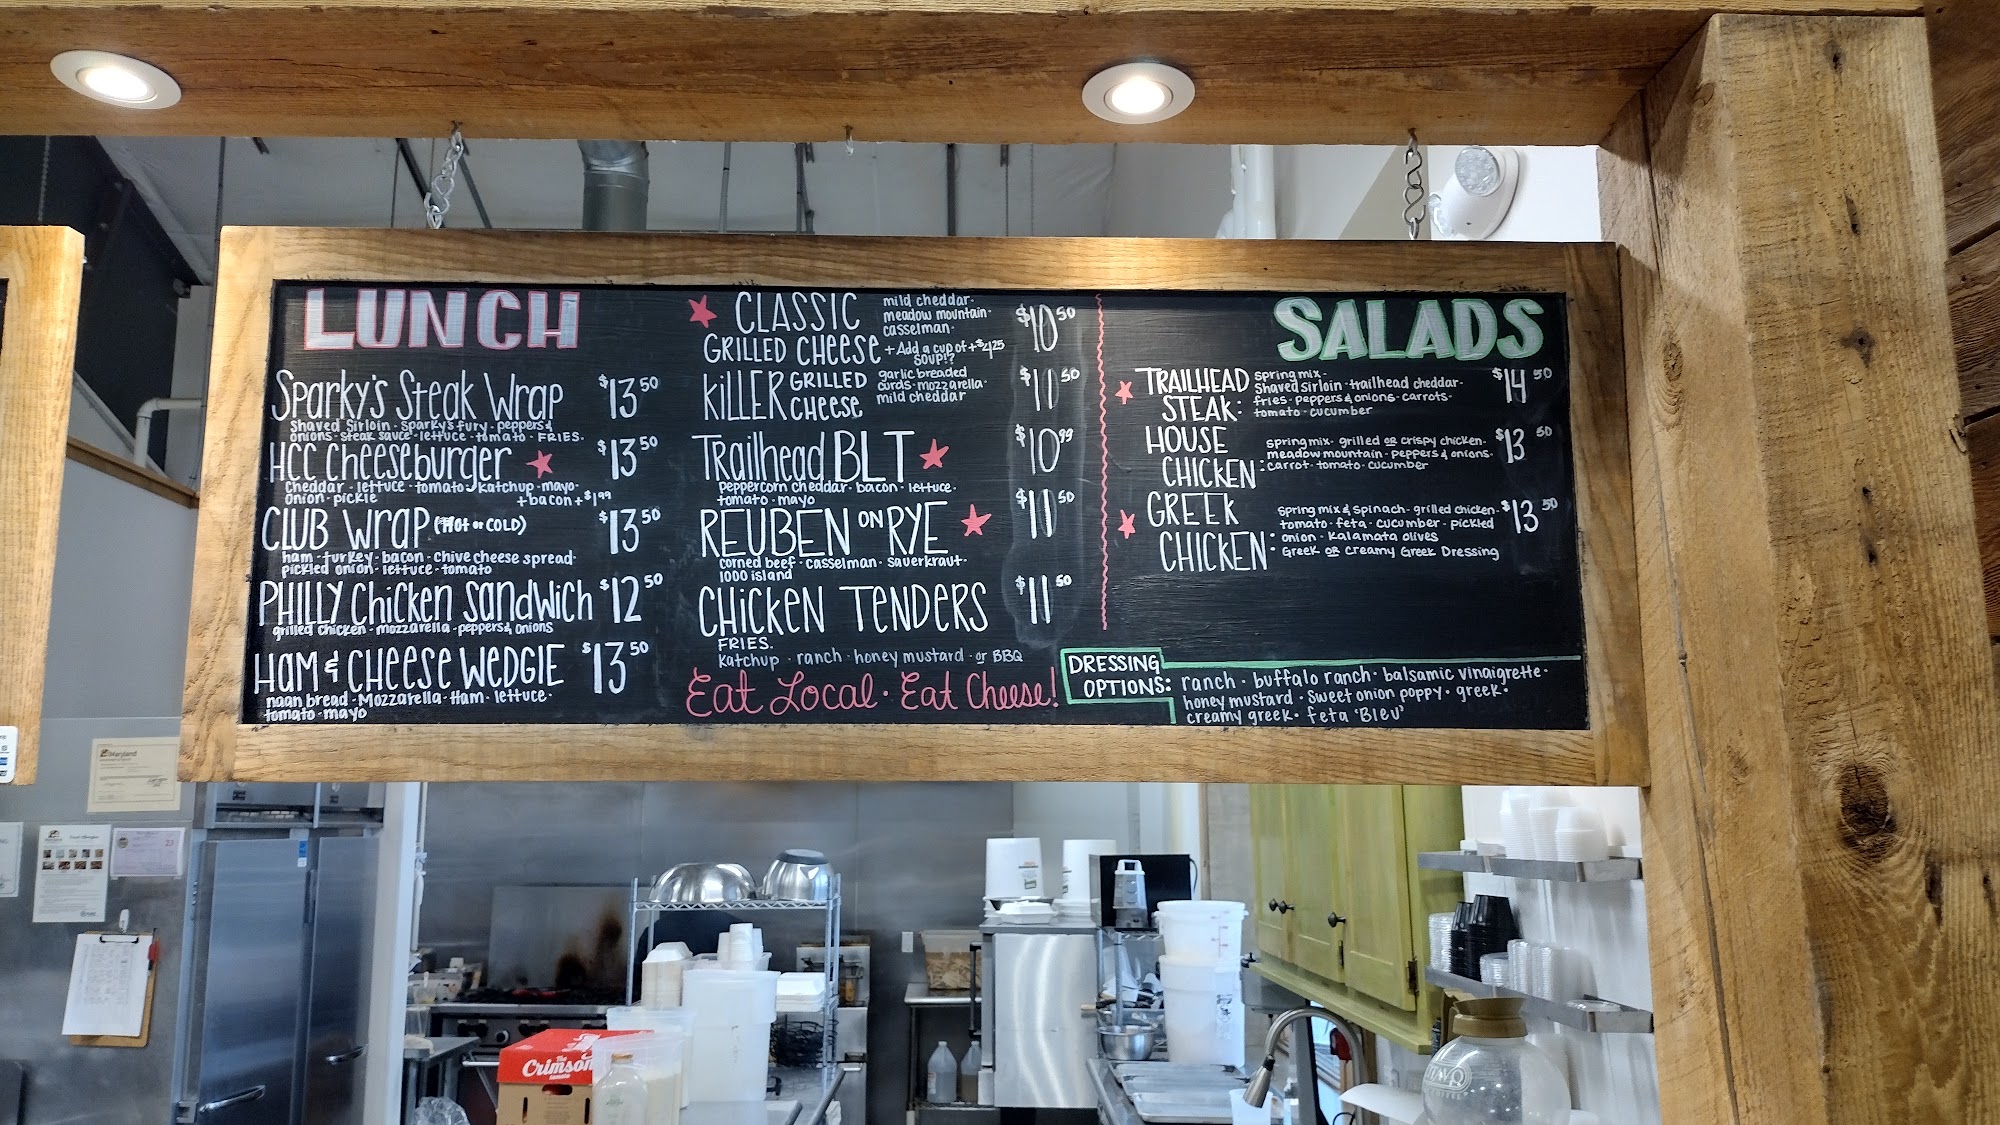 LUNCH
Sparky's Steak Wrap $13.50
Shaved Sirloin · Sparky's fury · peppers &
onions · steak sauce · lettuce · tomato · FRIES ·
HCC Cheeseburger $13.50
Cheddar · lettuce · tomato · Ketchup · mayo ·
onion · pickle
+bacon +$1.99
CLUB Wrap (HOT or COLD) $13.50
ham · turkey · bacon · chive cheese spread ·
pickled onion · lettuce · tomato
PHILLY Chicken Sandwich $12.50
grilled chicken · mozzarella · peppers & onions
Ham & Cheese Wedgie $13.50
naan bread · Mozzarella · Ham · lettuce ·
tomato · mayo
CLASSIC
GRILLED CHEESE $10.50
mild cheddar ·
meadow mountain ·
casselman ·
+ Add a cup of +$4.25
SOUP!?
KILLER GRILLED
CHEESE $11.50
garlic breaded
curds · mozzarella ·
mild cheddar
Trailhead BLT $10.99
peppercorn cheddar · bacon · lettuce ·
tomato · mayo
REUBEN ON RYE $11.50
corned beef · casselman · sauerkraut ·
1000 island
CHICKEN TENDERS $11.50
FRIES.
Katchup · ranch · honey mustard · or BBQ
Eat Local · Eat Cheese!
SALADS
TRAILHEAD
STEAK: $14.50
spring mix ·
Shaved Sirloin · trailhead cheddar ·
fries · peppers & onions · carrots ·
tomato · cucumber
HOUSE
CHICKEN: $13.50
spring mix · grilled or crispy chicken ·
meadow mountain · peppers & onions ·
carrot · tomato · cucumber
GREEK
CHICKEN: $13.50
spring mix & spinach · grilled chicken ·
tomato · feta · cucumber · pickled
onion · Kalamata olives
Greek or Creamy Greek Dressing
DRESSING
OPTIONS:
ranch · buffalo ranch · balsamic vinaigrette ·
honey mustard · sweet onion poppy · greek ·
creamy greek · feta 'Bleu'
Maryland
23
The
Crimson